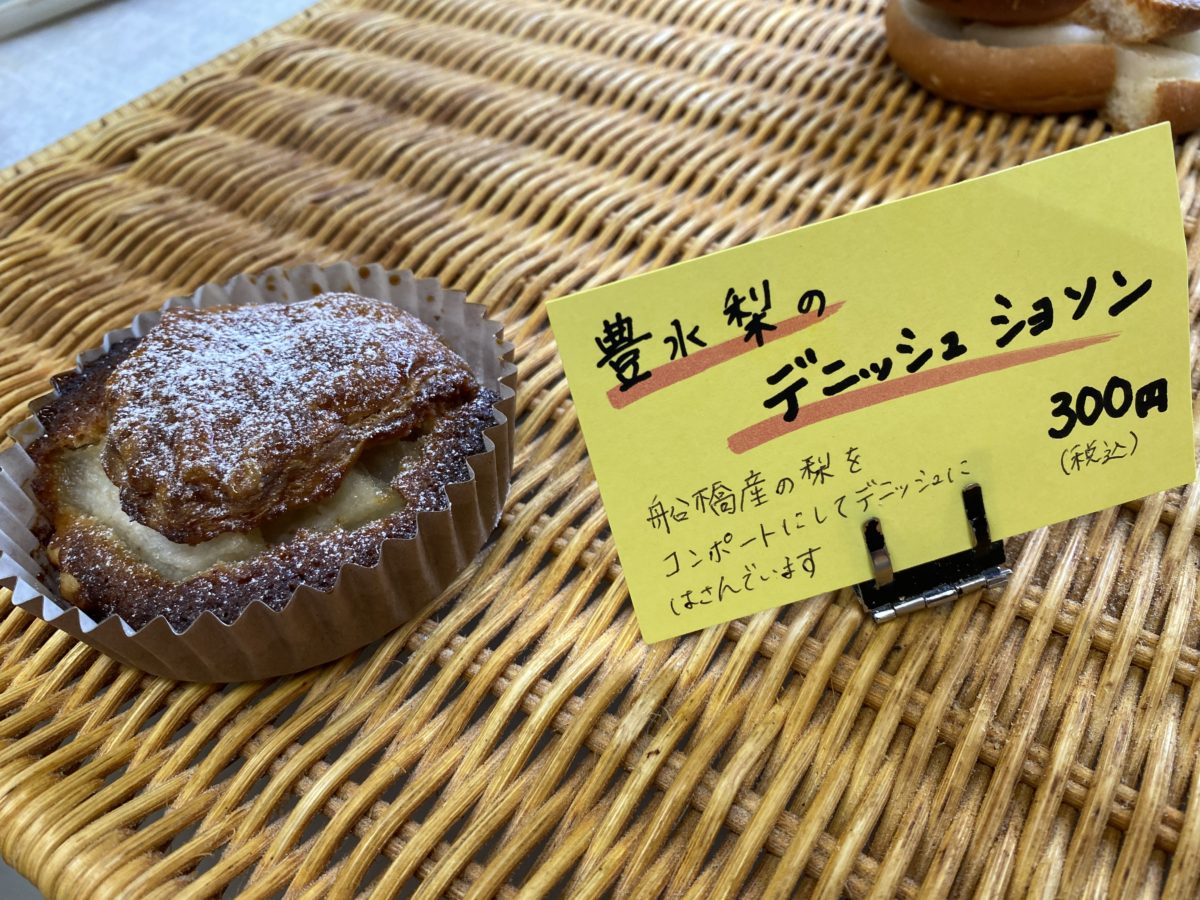 豊水梨の
デニッシュ ショソン
300円
(税込)
船橋産の梨を
コンポートにしてデニッシュに
はさんでいます